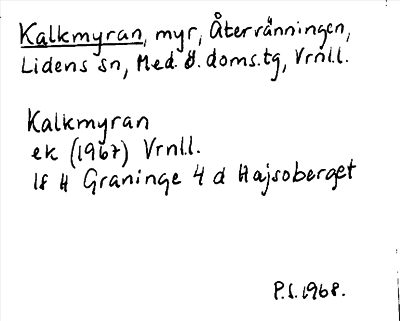 Kalkmyran, myr, Återvänningen,
Lidens sn, Med. Ö. doms.tg, Vrnl.l.
Kalkmyran
ek (1967) Vrnl.l.
18 H Graninge 4 d Hajsoberget
P.S. 1968.